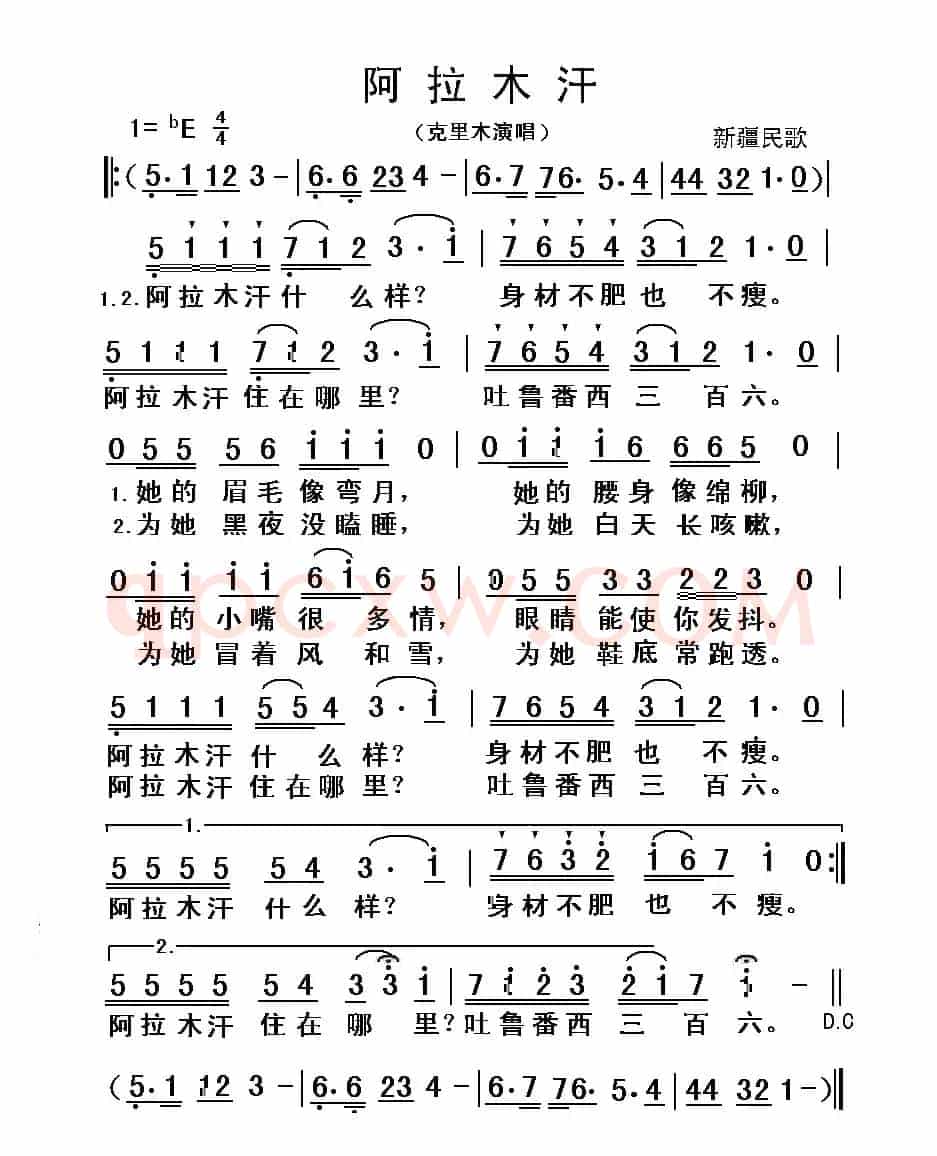 阿拉木汗
1= ᵇE 4/4
（克里木演唱）
新疆民歌
‖:(5·1 12 3 - | 6·6 23 4 - | 6·7 76· 5·4 | 44 32 1·0)|
5 1 1 1 7 1 2 3·i | 7 6 5 4 3 1 2 1·0 |
1.2.阿拉木汗什 么样? 身材不肥也 不瘦。
5 1 1 1 7 1 2 3·i | 7 6 5 4 3 1 2 1·0 |
阿拉木汗住在哪里? 吐鲁番西三 百六。
0 5 5 5 6 i i i 0 | 0 i i i 6 6 6 5 0 |
1.她的 眉毛像弯月, 她的 腰身像绵柳,
2.为她 黑夜没瞌睡, 为她 白天长咳嗽,
0 i i i i 6 i 6 5 | 0 5 5 3 3 2 2 3 0 |
她的 小嘴很 多情, 眼睛 能使你发抖。
为她 冒着风 和雪, 为她 鞋底常跑透。
qpcxw.com
5 1 1 1 5 5 4 3·i | 7 6 5 4 3 1 2 1·0 |
阿拉木汗什 么样? 身材不肥也 不瘦。
阿拉木汗住在哪里? 吐鲁番西三 百六。
1.
5 5 5 5 5 4 3·i | 7 6 3 2 i 6 7 i 0:‖
阿拉木汗 什么 样? 身材不肥 也 不瘦。
2.
5 5 5 5 5 4 3 3 i | 7 i 2 3 2 i 7 i - ‖
阿拉木汗 住在 哪 里?吐鲁番西 三 百 六。 D.C
(5·1 12 3 - | 6·6 23 4 - | 6·7 76· 5·4 | 44 32 1 -)‖